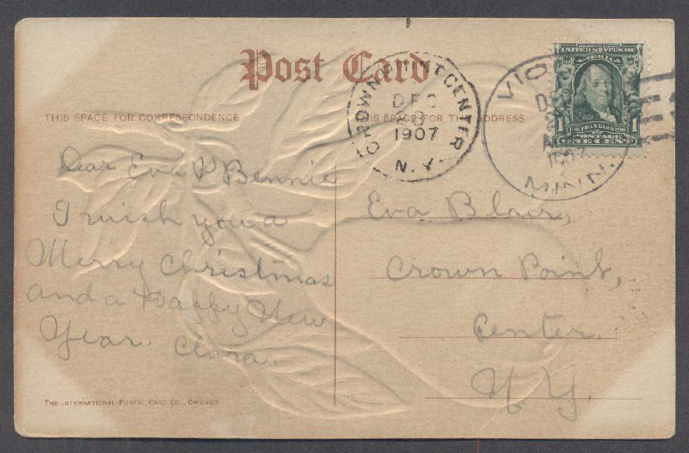 Post Card
THIS SPACE FOR CORRESPONDENCE
THIS SPACE FOR THE ADDRESS
CROWN POINT CENTER
DEC
1907
N.Y.
MINN.
UNITED STATES OF AMERICA
FRANKLIN
1 POSTAGE 1
ONE CENT
Dear Eva & Bennie
I wish you a
Merry Christmas
and a Happy New
Year. Clara.
Eva Blair,
Crown Point,
Center.
N.Y.
THE INTERNATIONAL POSTAL CARD CO., CHICAGO